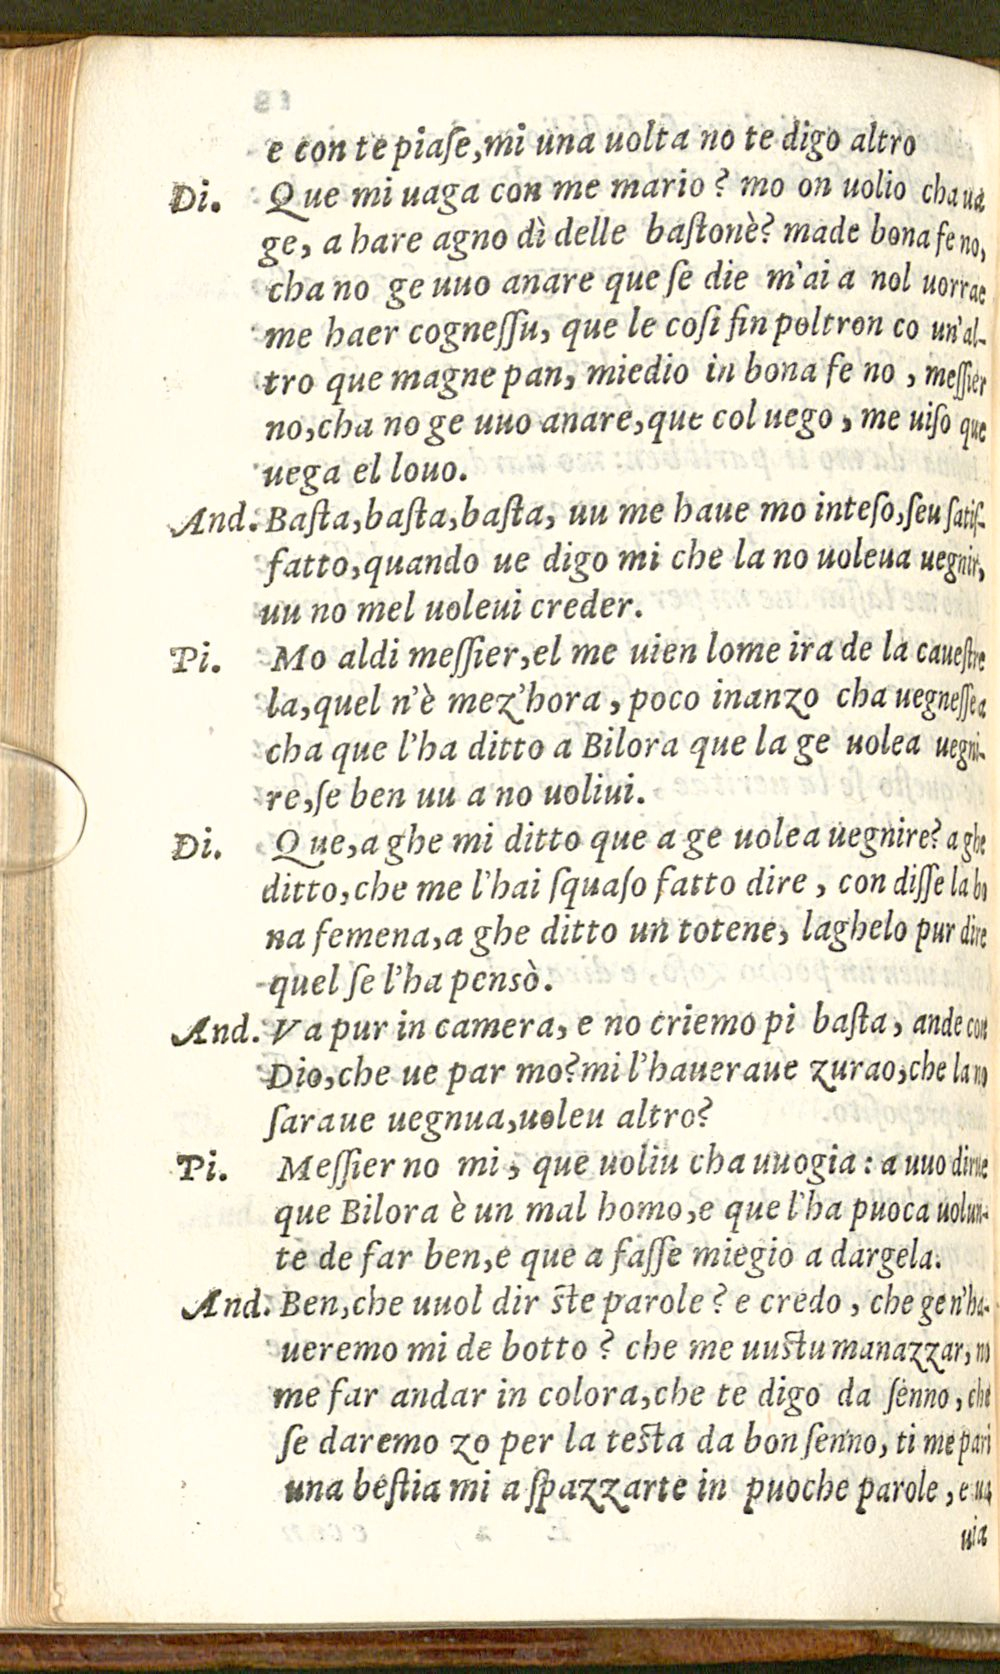 e con te piaſe, mi una uolta no te digo altro
Di. Que mi uaga con me mario? mo on uolio cha ua
ge, a hare agno dì delle baſtonè? made bona fe no,
cha no ge uuo anare que ſe die m'ai a nol uorrae
me haer cogneſſu, que le coſi fin poltron co un'al-
tro que magne pan, miedio in bona fe no, meſſier
no, cha no ge uuo anare, que col uego, me uiſo que
uega el louo.
And. Baſta, baſta, baſta, uu me haue mo inteſo, ſeu ſatiſ-
fatto, quando ue digo mi che la no uoleua uegnir,
uu no mel uoleui creder.
Pi. Mo aldi meſſier, el me uien lome ira de la caueſtre
la, quel n'è mez'hora, poco inanzo cha uegneſſe a
cha que l'ha ditto a Bilora que la ge uolea uegni-
re, ſe ben uu a no uoliui.
Di. Que, a ghe mi ditto que a ge uolea uegnire? a ghe
ditto, che me l'hai ſquaſo fatto dire, con diſſe la bo
na femena, a ghe ditto un totene, laghelo pur dire
quel ſe l'ha pensò.
And. Va pur in camera, e no criemo pi baſta, ande con
Dio, che ue par mo? mi l'haueraue zurao, che la no
ſaraue uegnua, uoleu altro?
Pi. Meſſier no mi, que uoliu cha uuogia: a uuo dirue
que Bilora è un mal homo, e que l'ha puoca uolun-
te de far ben, e que a faſſe miegio a dargela.
And. Ben, che uuol dir ſte parole? e credo, che ge n'ha-
ueremo mi de botto? che me uuſtu manazzar, no
me far andar in colora, che te digo da ſenno, che
ſe daremo zo per la teſta da bon ſenno, ti me pari
una beſtia mi a ſpazzarte in puoche parole, e ua
uia